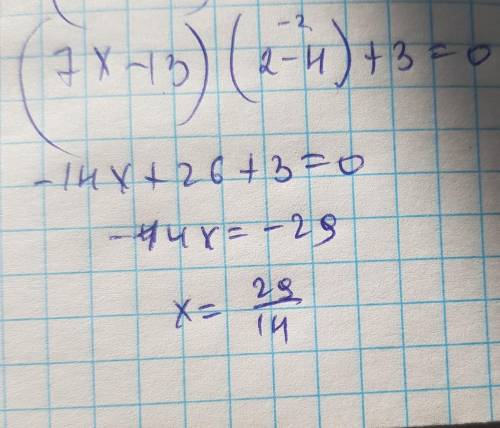 -2
(7x-13)(2-4)+3=0
-14x+26+3=0
-14x=-29
x=29/14